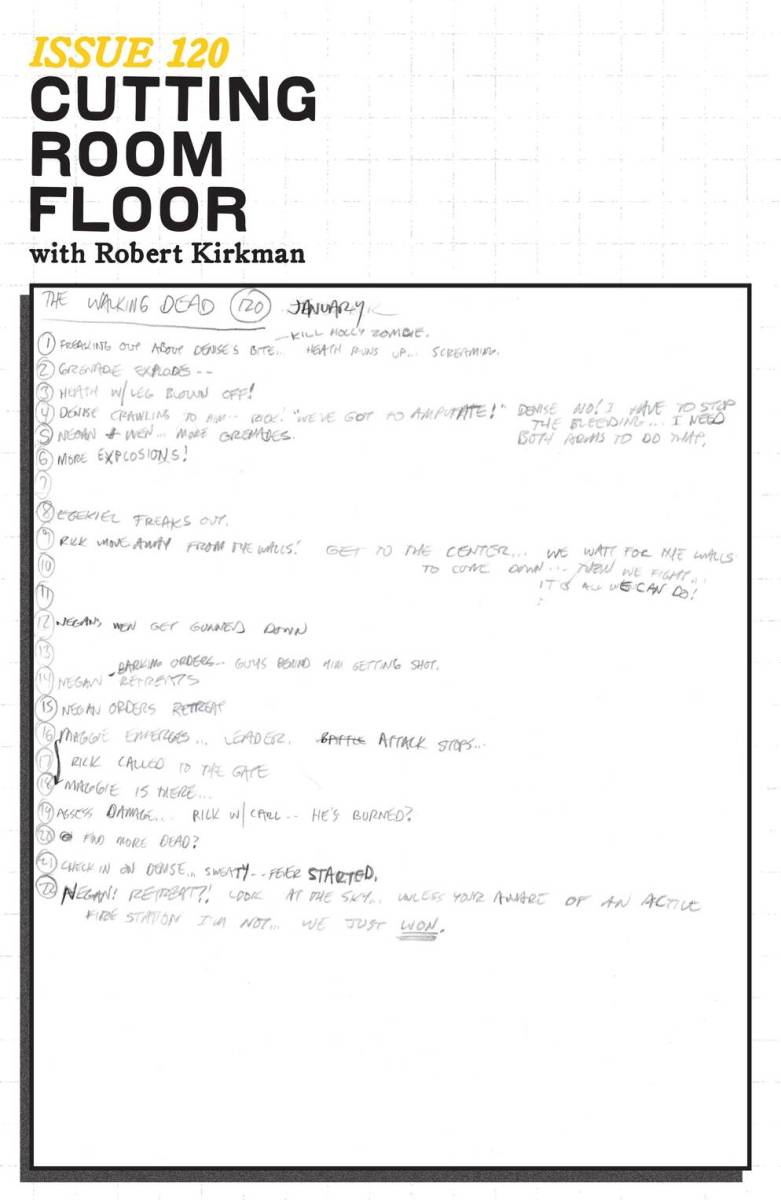 ISSUE 120
CUTTING
ROOM
FLOOR
with Robert Kirkman
THE WALKING DEAD 120 JANUARY
— KILL HOLLY ZOMBIE.
1 FREAKING OUT ABOUT DENISE'S BITE... HEATH RUNS UP... SCREAMING.
2 GRENADE EXPLODES --
3 HEATH W/LEG BLOWN OFF!
4 DENISE CRAWLING TO HIM -- RICK! "WE'VE GOT TO AMPUTATE!" DENISE NO! I HAVE TO STOP
THE BLEEDING... I NEED
5 NEGAN & MEN... MORE GRENADES.
BOTH ARMS TO DO THAT.
6 MORE EXPLOSIONS!
7
8 EZEKIEL FREAKS OUT.
9 RICK MOVE AWAY FROM THE WALLS! GET TO THE CENTER... WE WAIT FOR THE WALLS
10 TO COME DOWN... THEN WE FIGHT...
IT IS ALL WE CAN DO!
11
12 NEGAN'S MEN GET GUNNED DOWN
13
- BARKING ORDERS... GUYS BEHIND HIM GETTING SHOT.
14 NEGAN RETREATS
15 NEGAN ORDERS RETREAT
16 MAGGIE EMERGES... LEADER. BATTLE ATTACK STOPS...
17 RICK CALLED TO THE GATE
18 MAGGIE IS THERE...
19 ASSESS DAMAGE... RICK W/ CARL -- HE'S BURNED?
20 FIND MORE DEAD?
21 CHECK IN ON DENISE... SWEATY -- FEVER STARTED.
22 NEGAN! RETREAT?! LOOK AT THE SKY... UNLESS YOUR AWARE OF AN ACTIVE
FIRE STATION I'M NOT... WE JUST WON.